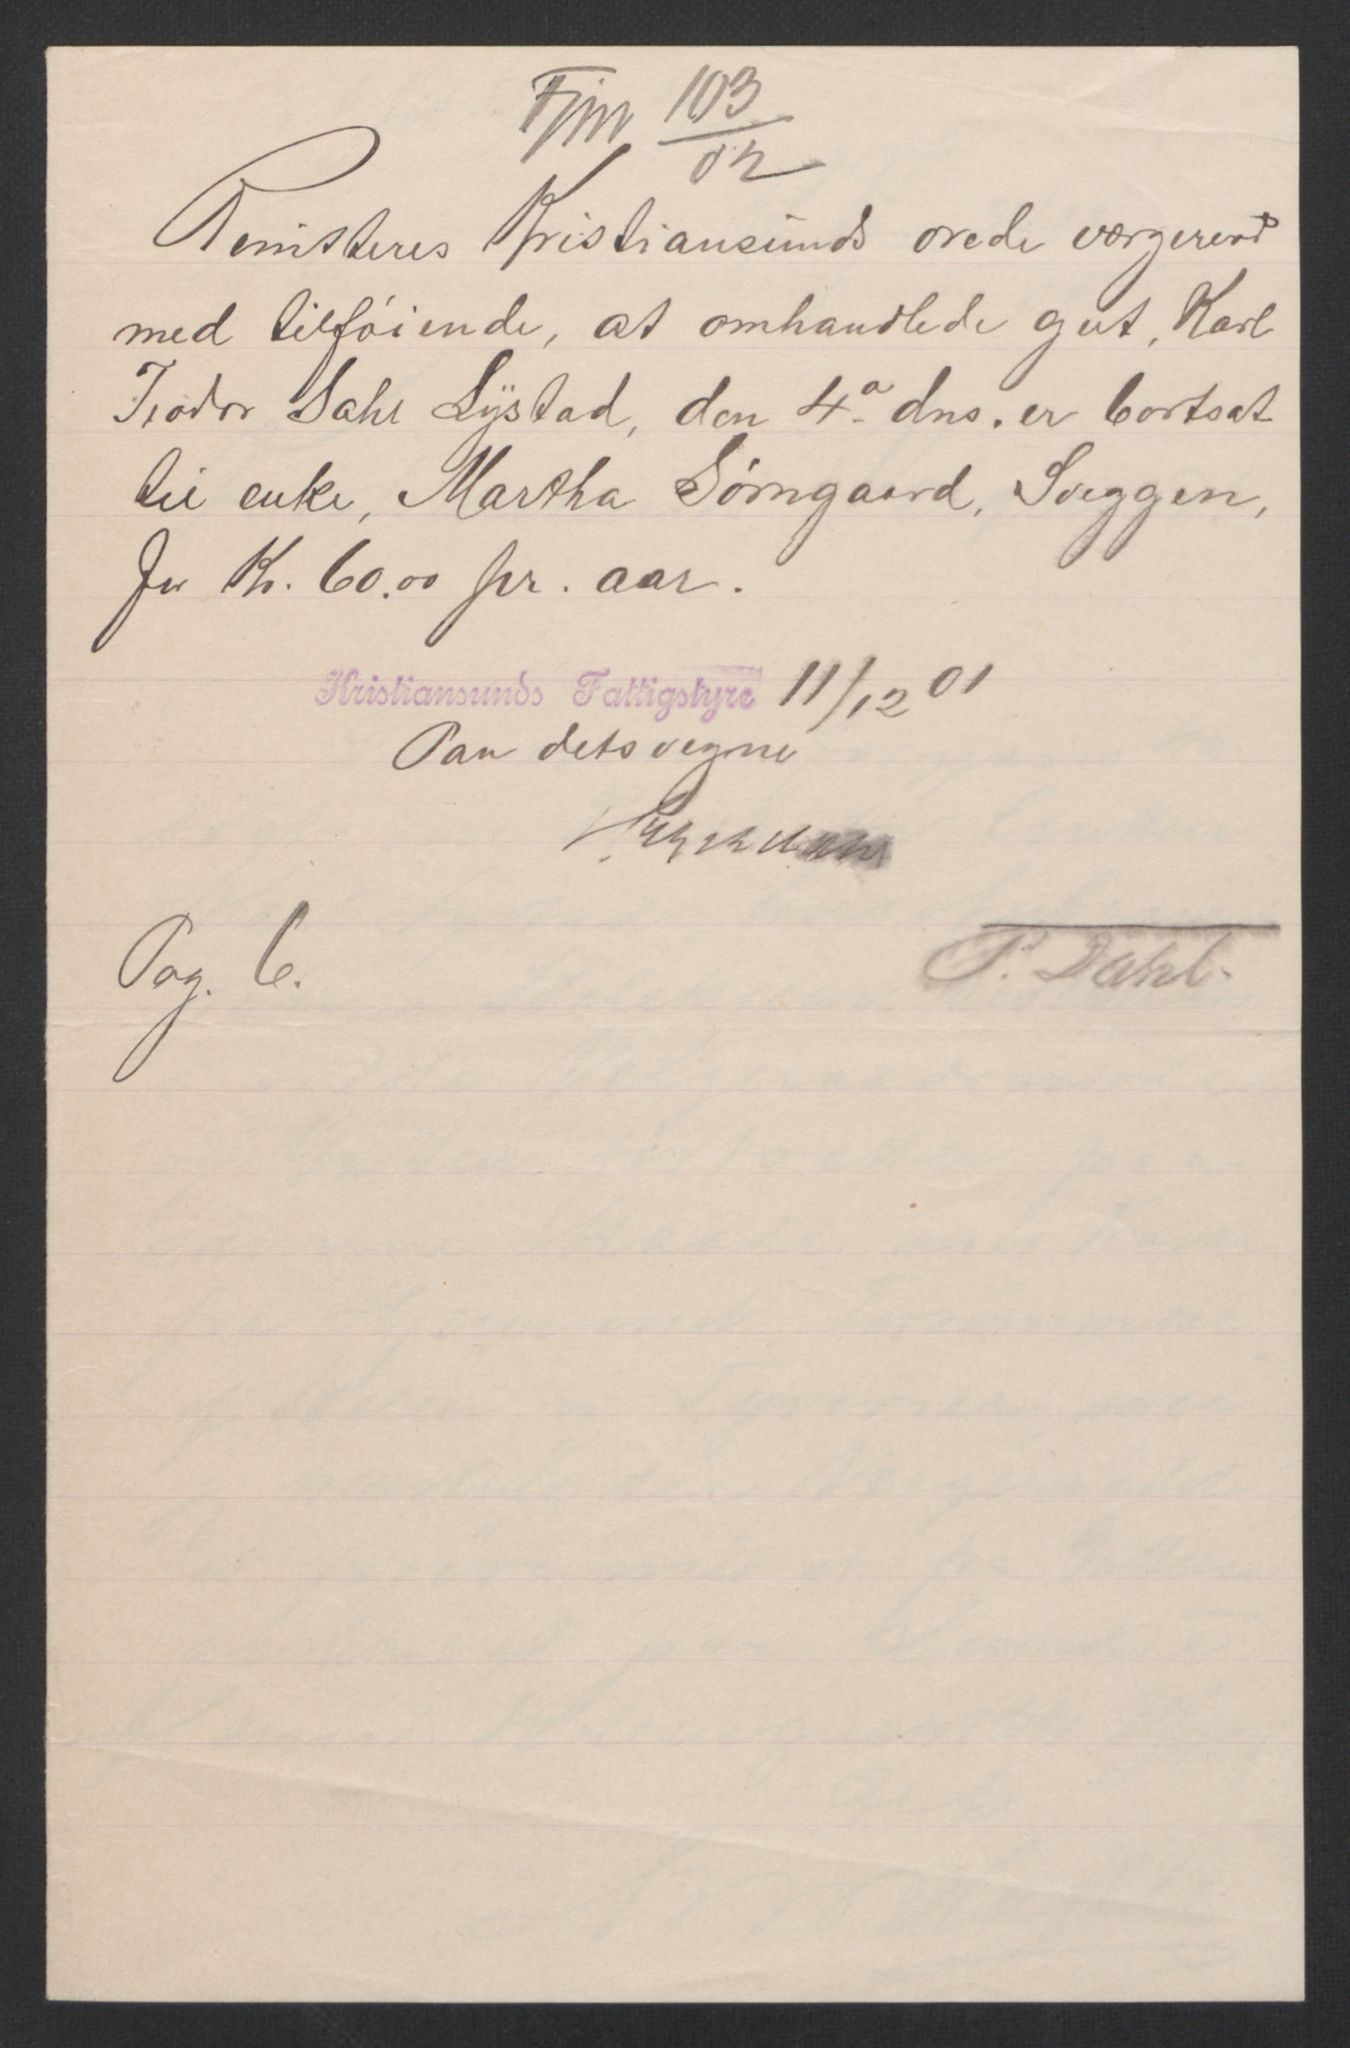 Fjm 103/02
Remitteres Kristiansunds ærede værgeraad
med tilføiende, at omhandlede gut, Karl
Teodor Dahl Lystad, den 4.ᵃ dns. er bortsat
til enke, Martha Sørngaard, Sveggen,
for Kr. 60.00 pr. aar.
Kristiansunds Fattigstyre 11/12 01
Paa dets vegne
P. Dahl.
Pag. 6.